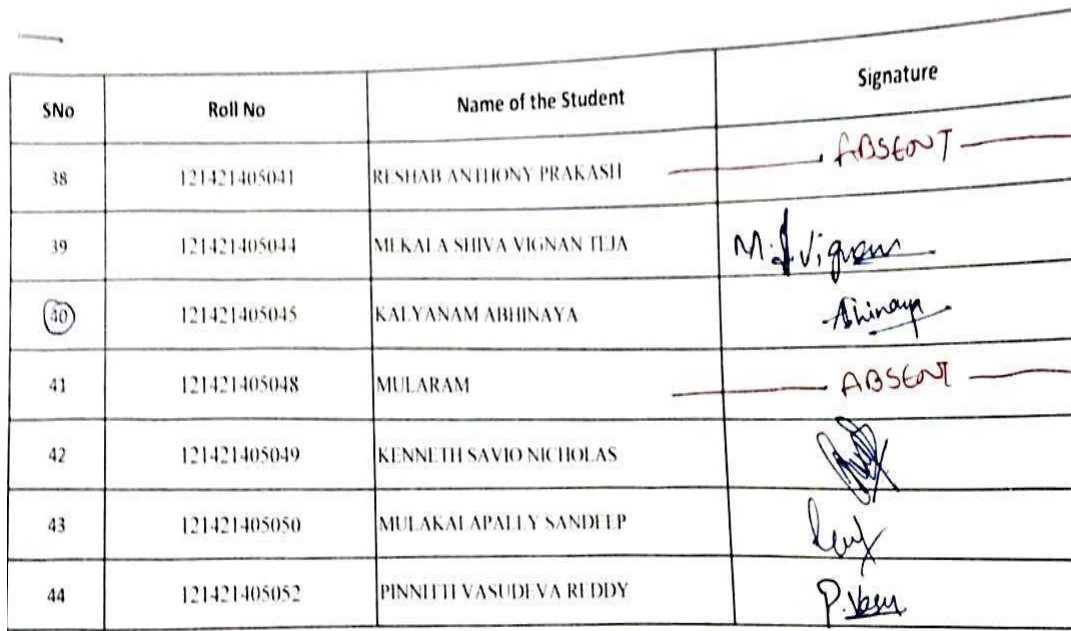 SNo Roll No Name of the Student Signature
38 121421405041 RESHAB ANTHONY PRAKASH ABSENT
39 121421405044 MEKALA SHIVA VIGNAN TEJA M. Vignan
40 121421405045 KALYANAM ABHINAYA Abhinaya
41 121421405048 MULARAM ABSENT
42 121421405049 KENNETH SAVIO NICHOLAS
43 121421405050 MULAKALAPALLY SANDEEP
44 121421405052 PINNITTI VASUDEVA REDDY P. Vasu